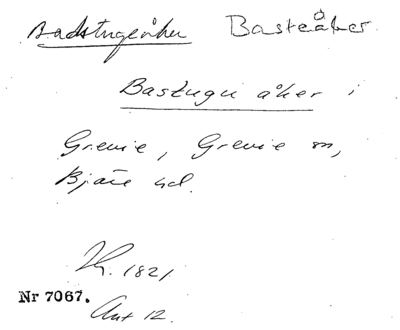 Badstugeåker Basteåker
Bastugu åker i
Grevie, Grevie sn,
Bjäre hd.
1821
Nr 7067.
Ant 12.